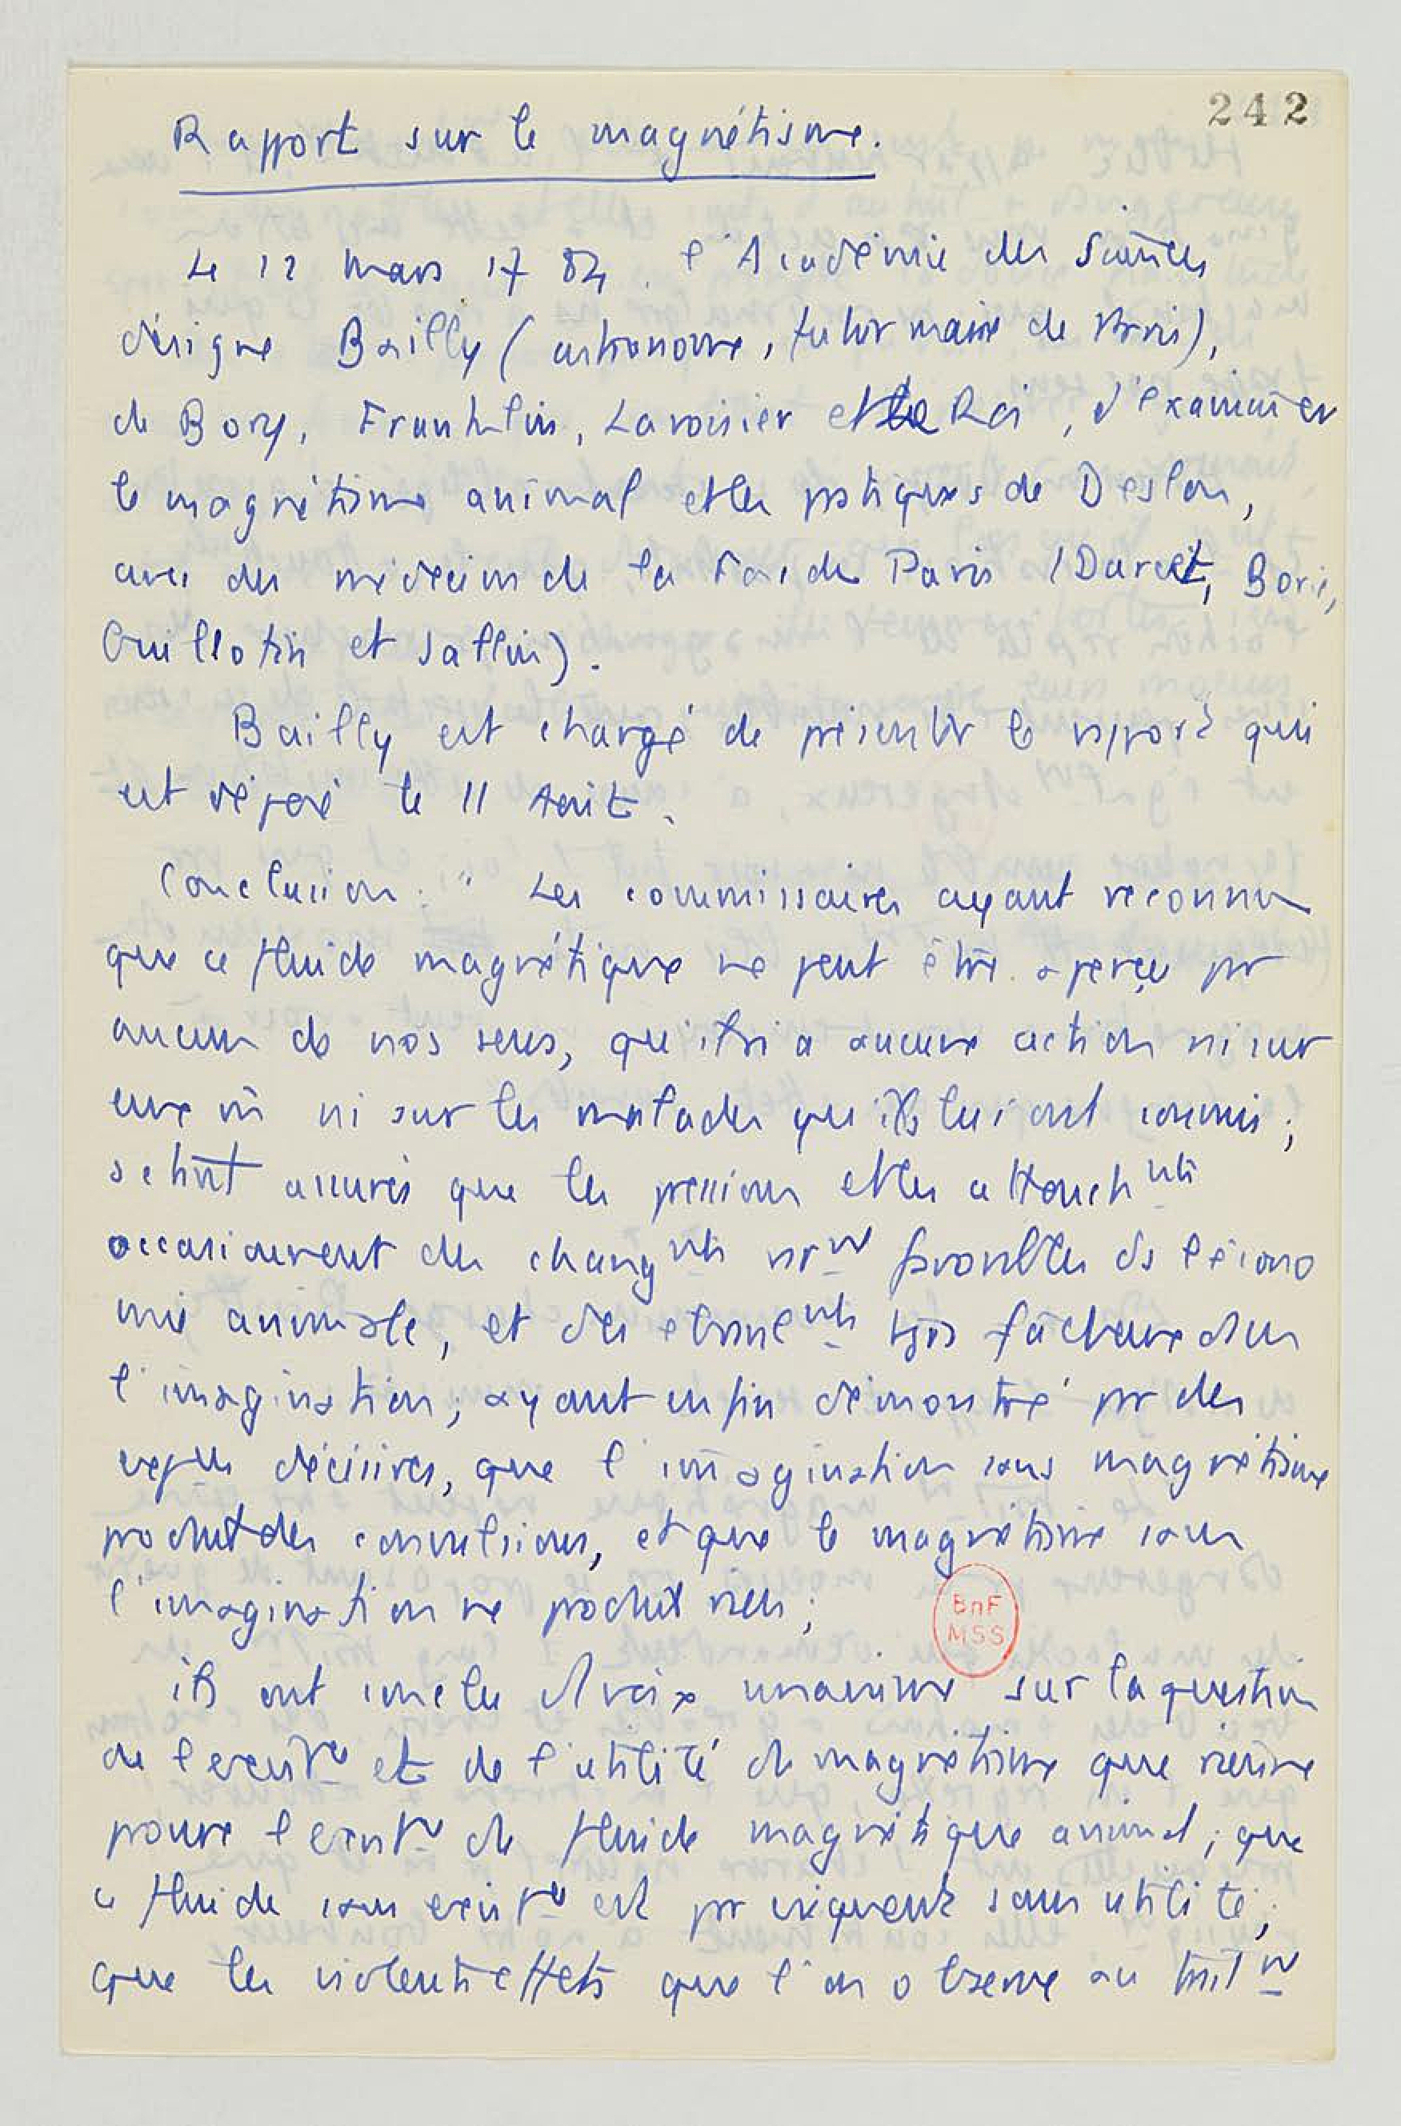 242
Rapport sur le magnétisme.
Le 12 mars 1784. l'Académie des Sciences
désigne Bailly (astronome, futur maire de Paris),
de Bory, Franklin, Lavoisier et Le Roi, d'examiner
le magnétisme animal et les pratiques de Deslon,
avec des médecins de la Fac de Paris (Darcet, Borie,
Guillotin et Sallin).
Bailly est chargé de présenter le rapport qui
est déposé le 11 Août.
Conclusion : " Les commissaires ayant reconnu
que ce fluide magnétique ne peut être aperçu par
aucun de nos sens, qu'il n'a aucune action ni sur
eux mˆ ni sur les malades qu'ils lui ont soumis ;
s'étant assurés que les pressions et les attouchnts
occasionnent des changnts rarnt favorables ds l'écono
mie animale, et des ebranlnts tjrs facheux dans
l'imagination ; ayant enfin démontré par des
expces décisives, que l'imagination sans magnétisme
produit des convulsions, et que le magnétisme sans
l'imagination ne produit rien ;
BnF
MSS
ils ont conclu d'1 voix unanime sur la question
de l'existce et de l'utilité du magnétisme que rien ne
prouve l'existce du fluide magnétique animal ; que
ce fluide sans existce est par conséquent sans utilité ;
que les violents effets que l'on observe au traitnt